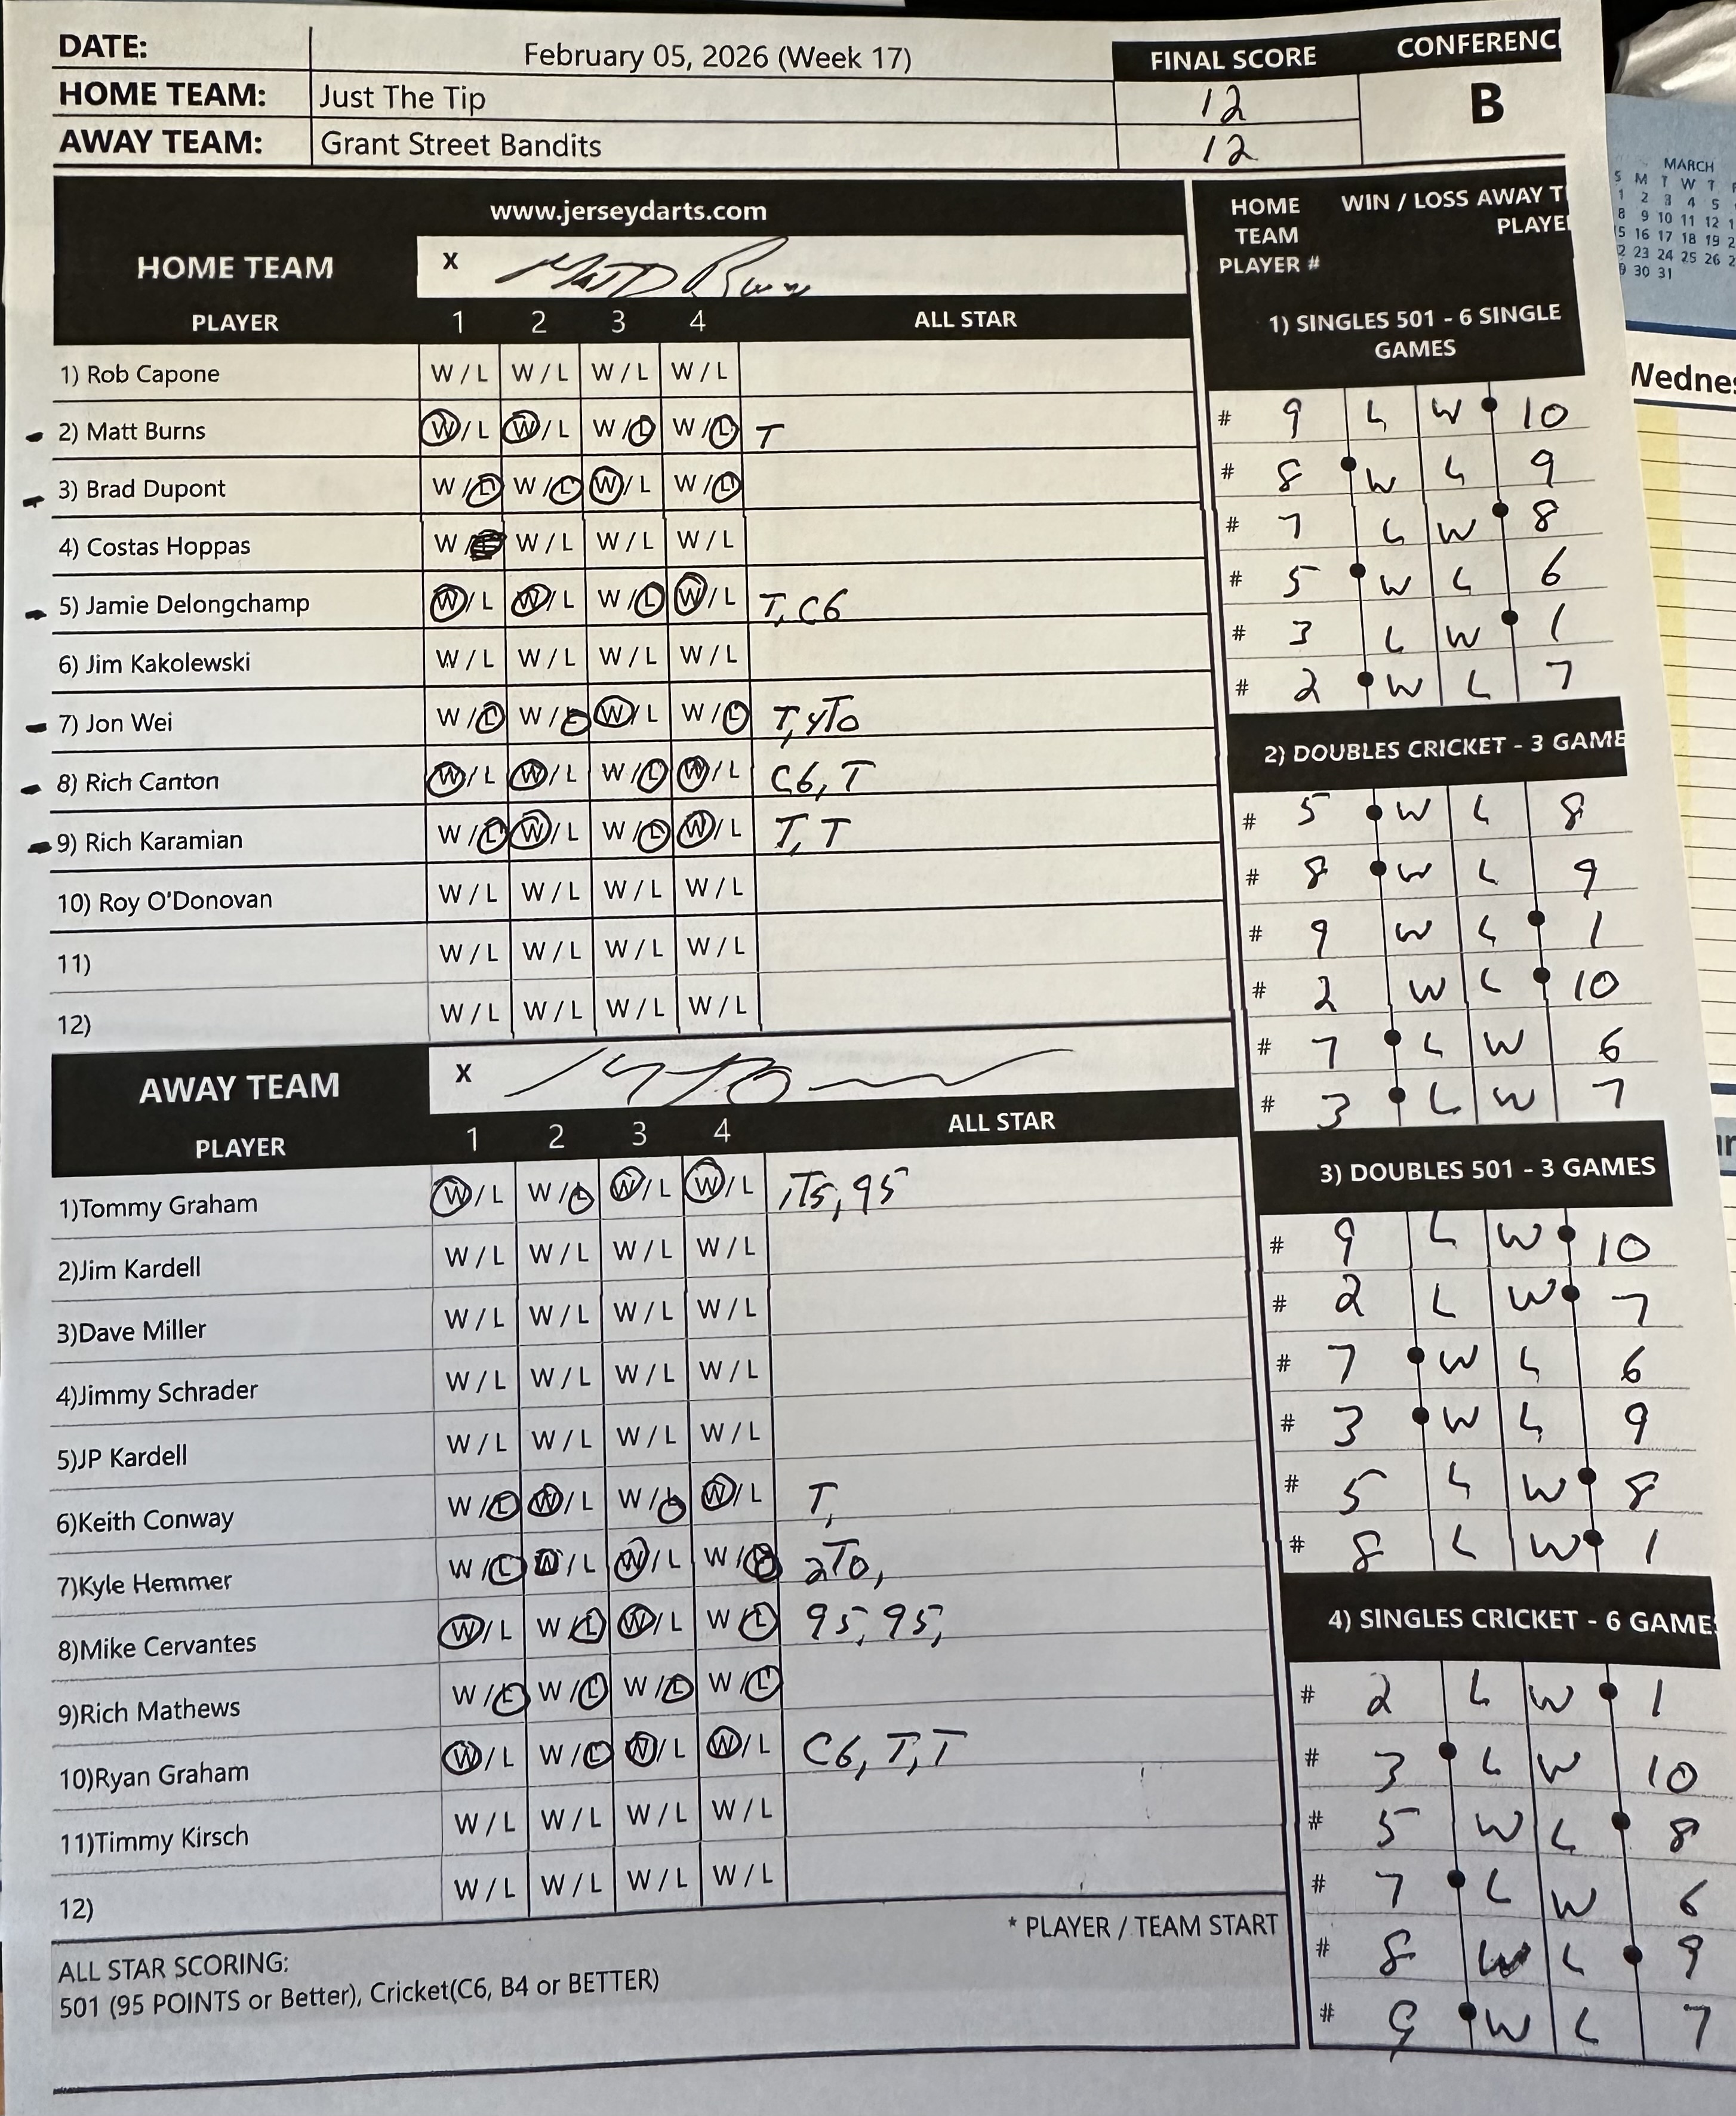 DATE: February 05, 2026 (Week 17) FINAL SCORE CONFERENC
HOME TEAM: Just The Tip 12 B
AWAY TEAM: Grant Street Bandits 12
www.jerseydarts.com
HOME TEAM X
PLAYER 1 2 3 4 ALL STAR
1) Rob Capone W / L W / L W / L W / L
2) Matt Burns W / L W / L W / L W / L T
3) Brad Dupont W / L W / L W / L W / L
4) Costas Hoppas W / W / L W / L W / L
5) Jamie Delongchamp W / L W / L W / L W / L T, C6
6) Jim Kakolewski W / L W / L W / L W / L
7) Jon Wei W / L W / L W / L W / L T,
8) Rich Canton W / L W / L W / L W / L C6, T
9) Rich Karamian W / L W / L W / L W / L T, T
10) Roy O'Donovan W / L W / L W / L W / L
11) W / L W / L W / L W / L
12) W / L W / L W / L W / L
AWAY TEAM X
PLAYER 1 2 3 4 ALL STAR
1)Tommy Graham W / L W / L W / L W / L 95
2)Jim Kardell W / L W / L W / L W / L
3)Dave Miller W / L W / L W / L W / L
4)Jimmy Schrader W / L W / L W / L W / L
5)JP Kardell W / L W / L W / L W / L
6)Keith Conway W / L W / L W / L W / L T,
7)Kyle Hemmer W / L W / L W / L W / L
8)Mike Cervantes W / L W / L W / L W / L 95, 95,
9)Rich Mathews W / L W / L W / L W / L
10)Ryan Graham W / L W / L W / L W / L C6, T, T
11)Timmy Kirsch W / L W / L W / L W / L
12) W / L W / L W / L W / L
* PLAYER / TEAM START
ALL STAR SCORING:
501 (95 POINTS or Better), Cricket(C6, B4 or BETTER)
HOME WIN / LOSS AWAY T
TEAM PLAYE
PLAYER #
1) SINGLES 501 - 6 SINGLE
GAMES
# 9 L W 10
# 8 W L 9
# 7 L W 8
# 5 W L 6
# 3 L W 1
# 2 W L 7
2) DOUBLES CRICKET - 3 GAME
# 5 W L 8
# 8 W L 9
# 9 W L 1
# 2 W L 10
# 7 L W 6
# 3 L W 7
3) DOUBLES 501 - 3 GAMES
# 9 L W 10
# 2 L W 7
# 7 W L 6
# 3 W L 9
# 5 L W 8
# 8 L W 1
4) SINGLES CRICKET - 6 GAMES
# 2 L W 1
# 3 L W 10
# 5 W L 8
# 7 L W 6
# 8 W L 9
# 9 W L 7
MARCH
S M T W T F
1 2 3 4 5
8 9 10 11 12
5 16 17 18 19 2
2 23 24 25 26 2
9 30 31
Wednes